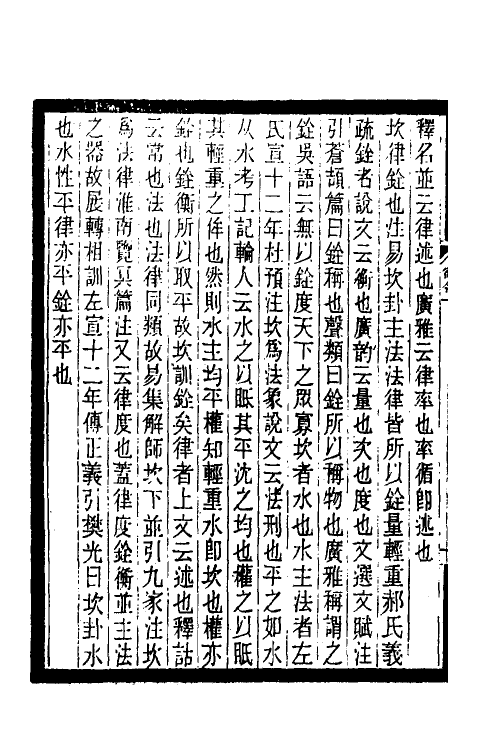 釋名並云律述也廣雅云律率也率循卽述也
坎律銓也注易坎卦主法法律皆所以銓量輕重郝氏義
疏銓者說文云衡也廣韵云量也次也度也文選文賦注
引蒼頡篇曰銓稱也聲類曰銓所以稱物也廣雅稱謂之
銓吳語云無以銓度天下之眾寡坎者水也水主法者左
氏宣十二年杜預注坎爲法象說文云法刑也平之如水
从水考工記輪人云水之以眡其平沈之均也權之以眡
其輕重之侔也然則水主均平權知輕重水卽坎也權亦
銓也銓衡所以取平故坎訓銓矣律者上文云述也釋詁
云常也法也法律同類故易集解師坎下並引九家注坎
爲法律淮南覽冥篇注又云律度也蓋律度銓衡並主法
之器故展轉相訓左宣十二年傳正義引樊光曰坎卦水
也水性平律亦平銓亦平也